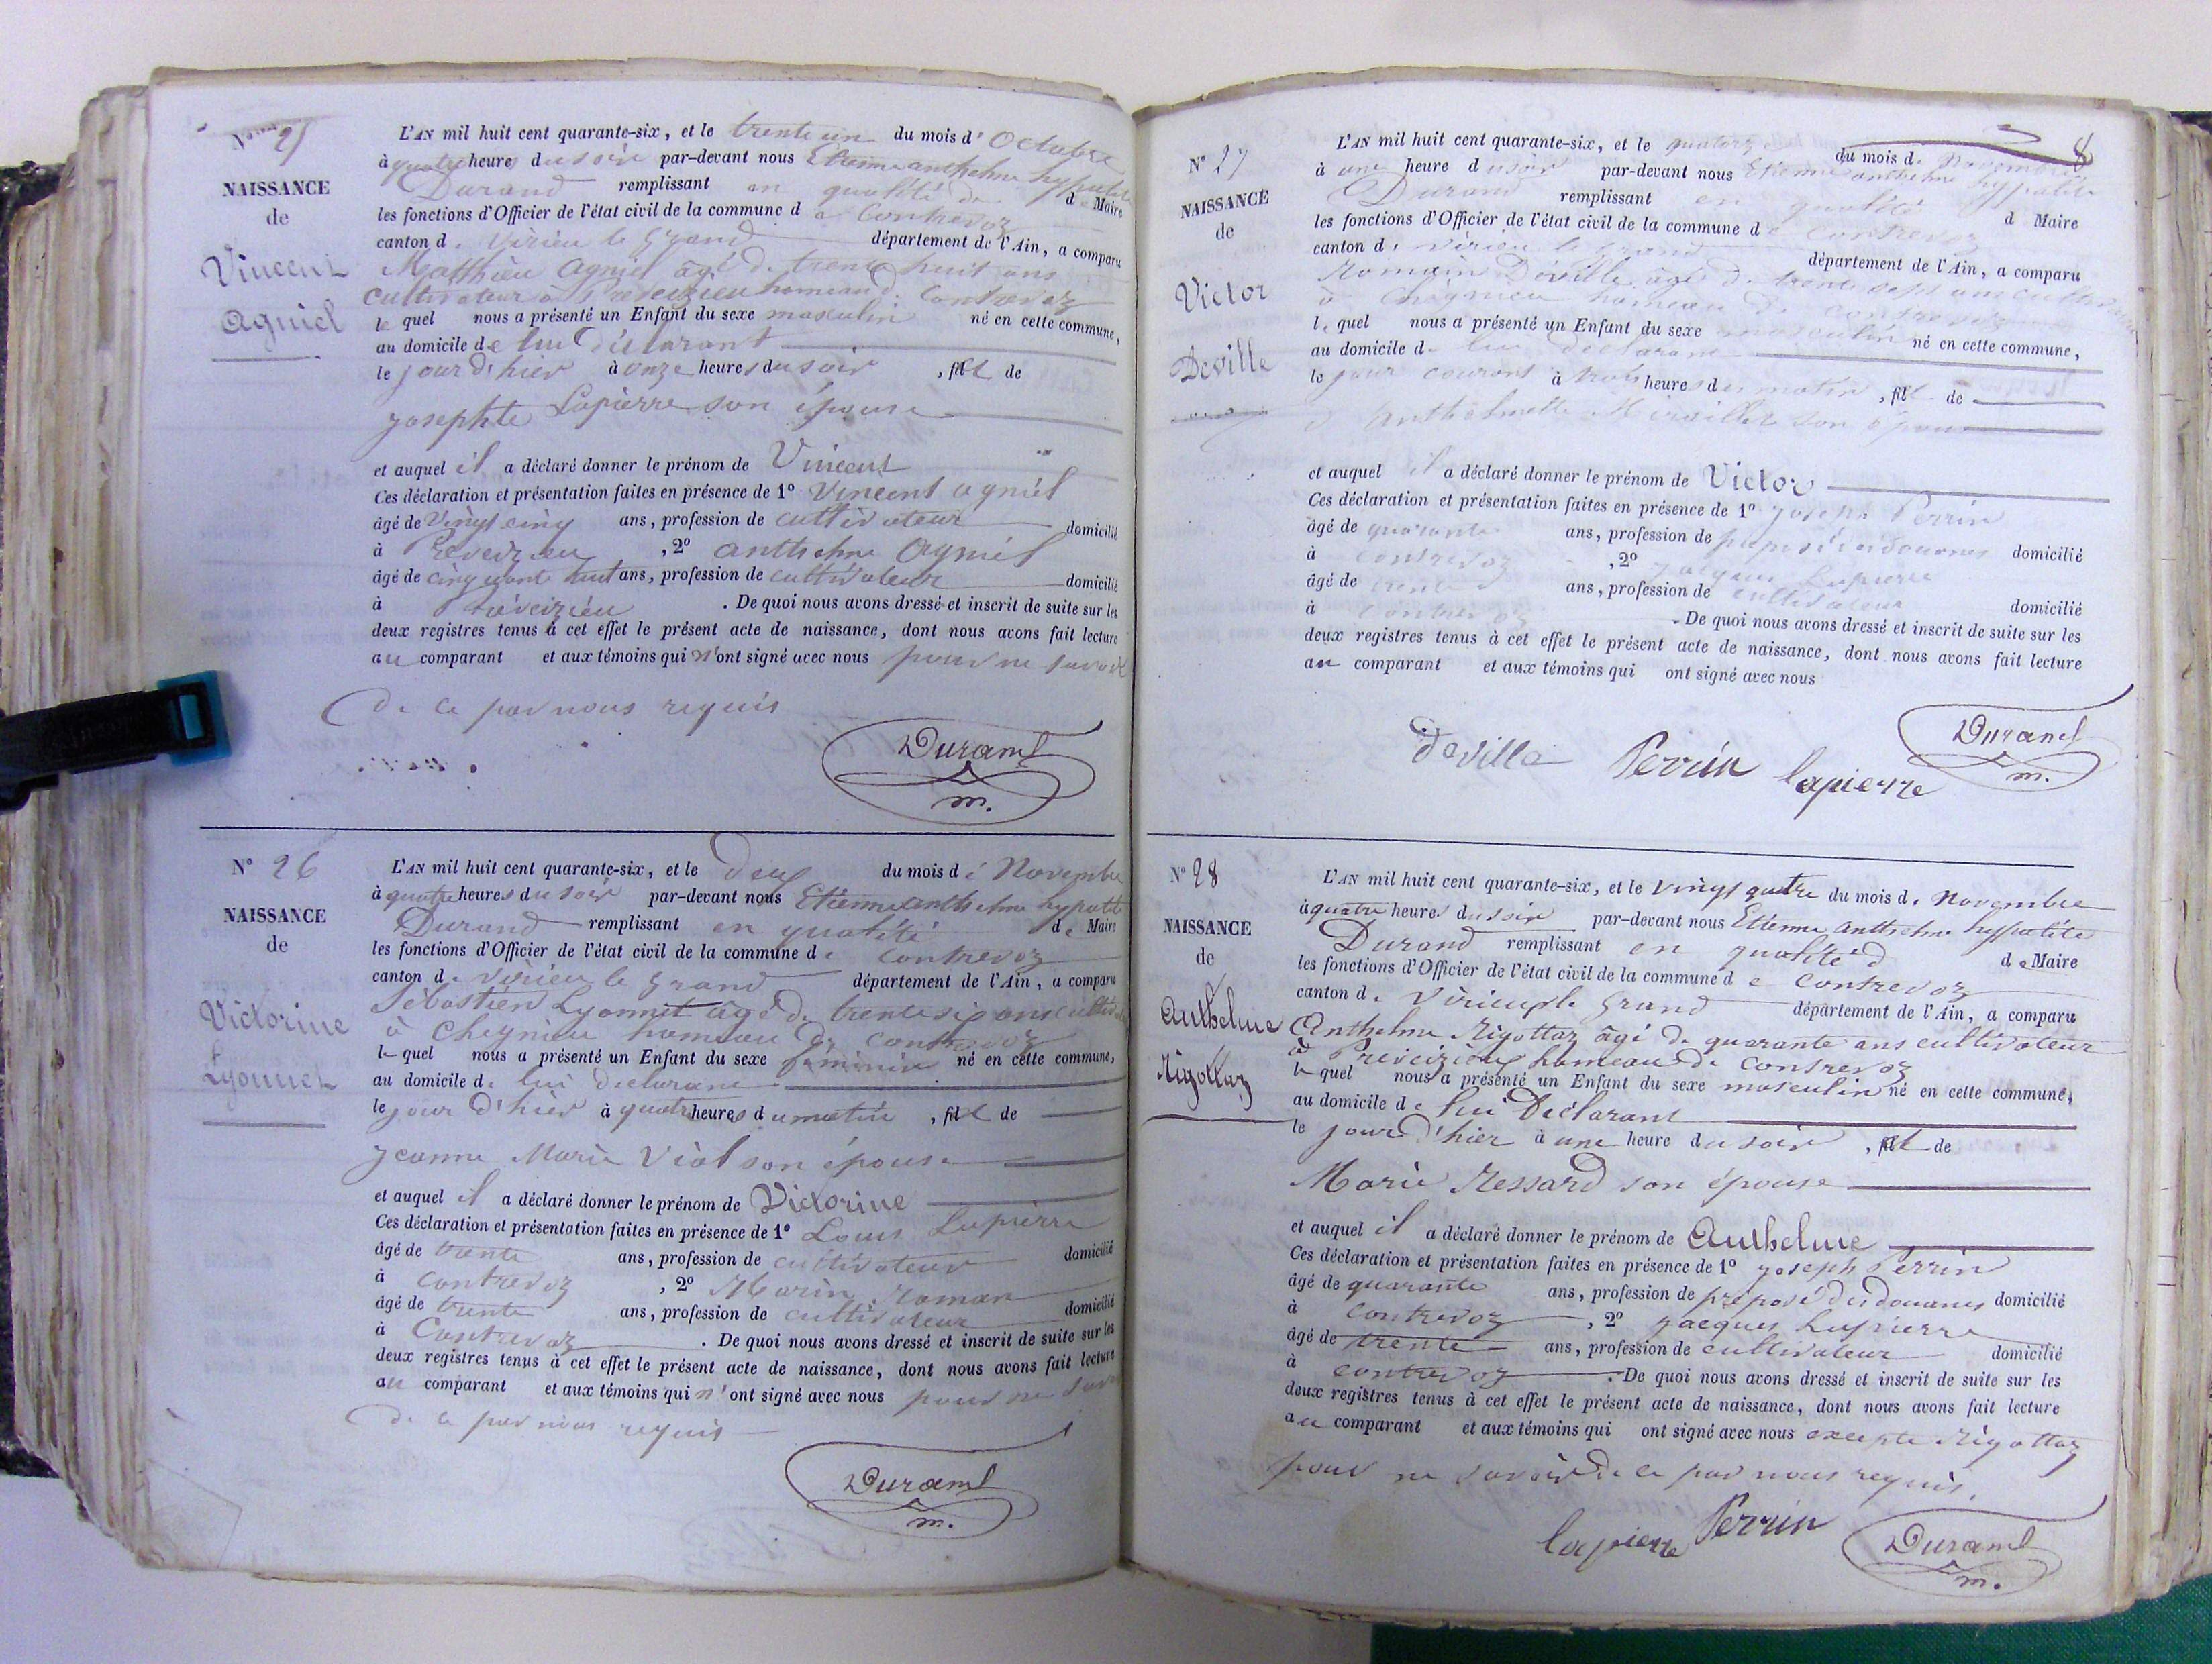 N° 25
NAISSANCE
de
Vincent
Agniel
L'AN mil huit cent quarante-six, et le trente un du mois d'Octobre
à quatre heures du soir par-devant nous Etienne anthelme hypolite
Durand remplissant en qualité de Maire
les fonctions d'Officier de l'état civil de la commune de Contrevoz
canton de virieu le grand département de l'Ain, a comparu
Matthieu Agniel âgé de trente huit ans
cultivateur à Preveizieu hameau de Contrevoz
lequel nous a présenté un Enfant du sexe masculin né en cette commune,
au domicile de lui déclarant
le jour d'hier à onze heures du soir, fils de
Josephte Lapierre son épouse
et auquel il a déclaré donner le prénom de Vincent
Ces déclaration et présentation faites en présence de 1° Vincent agniel
âgé de Vingt cinq ans, profession de cultivateur domicilié
à Preveizieu, 2° anthelme Agniel
âgé de cinquante huit ans, profession de cultivateur domicilié
à Préveizieu. De quoi nous avons dressé et inscrit de suite sur les
deux registres tenus à cet effet le présent acte de naissance, dont nous avons fait lecture
au comparant et aux témoins qui n'ont signé avec nous pour ne savoir
de ce par nous requis
Durand
m.
N° 26
NAISSANCE
de
Victorine
Lyonnet
L'AN mil huit cent quarante-six, et le deux du mois de Novembre
à quatre heures du soir par-devant nous Etienne anthelme hypolite
Durand remplissant en qualité de Maire
les fonctions d'Officier de l'état civil de la commune de Contrevoz
canton de virieu le grand département de l'Ain, a comparu
Sébastien Lyonnet âgé de trente six ans
à Cheignieu hameau de Contrevoz
lequel nous a présenté un Enfant du sexe féminin né en cette commune,
au domicile de lui déclarant
le jour d'hier à quatre heures du matin, fil de
Jeanne Marie Viol son épouse
et auquel il a déclaré donner le prénom de Victorine
Ces déclaration et présentation faites en présence de 1° Louis Lapierre
âgé de trente ans, profession de cultivateur domicilié
à Contrevoz, 2° Marin Roman
âgé de trente ans, profession de cultivateur domicilié
à Contrevoz. De quoi nous avons dressé et inscrit de suite sur les
deux registres tenus à cet effet le présent acte de naissance, dont nous avons fait lecture
au comparant et aux témoins qui n'ont signé avec nous pour ne
de ce par nous requis
Durand
m.
8
N° 27
NAISSANCE
de
Victor
Deville
L'AN mil huit cent quarante-six, et le quatorze du mois de Novembre
à une heure du soir par-devant nous Etienne anthelme hypolite
Durand remplissant en qualité d Maire
les fonctions d'Officier de l'état civil de la commune de Contrevoz
canton de virieu le grand département de l'Ain, a comparu
Romain Deville âgé de trente sept ans
à Cheignieu hameau de Contrevoz
lequel nous a présenté un Enfant du sexe masculin né en cette commune,
au domicile de lui déclarant
le jour courant à trois heures du matin, fils de
d'Anthelmette son épouse
et auquel il a déclaré donner le prénom de Victor
Ces déclaration et présentation faites en présence de 1° Joseph Perrin
âgé de quarante ans, profession de préposé des douanes domicilié
à Contrevoz, 2° Jacques Lapierre
âgé de trente ans, profession de cultivateur domicilié
à Contrevoz. De quoi nous avons dressé et inscrit de suite sur les
deux registres tenus à cet effet le présent acte de naissance, dont nous avons fait lecture
au comparant et aux témoins qui ont signé avec nous
deville Perrin lapierre Durand
m.
N° 28
NAISSANCE
de
Anthelme
Rigottaz
L'AN mil huit cent quarante-six, et le vingt quatre du mois de Novembre
à quatre heures du soir par-devant nous Etienne anthelme hypolite
Durand remplissant en qualité d de Maire
les fonctions d'Officier de l'état civil de la commune de Contrevoz
canton de Virieu le Grand département de l'Ain, a comparu
Anthelme Rigottaz âgé de quarante ans cultivateur
à Préveizieu hameau de Contrevoz
lequel nous a présenté un Enfant du sexe masculin né en cette commune,
au domicile de lui Déclarant
le jour d'hier à une heure du soir, fils de
Marie Ressard son épouse
et auquel il a déclaré donner le prénom de Anthelme
Ces déclaration et présentation faites en présence de 1° Joseph Perrin
âgé de quarante ans, profession de préposé des douanes domicilié
à Contrevoz, 2° Jacques Lapierre
âgé de trente ans, profession de cultivateur domicilié
à Contrevoz. De quoi nous avons dressé et inscrit de suite sur les
deux registres tenus à cet effet le présent acte de naissance, dont nous avons fait lecture
au comparant et aux témoins qui ont signé avec nous excepte Rigottaz
pour ne savoir de ce par nous requis.
lapierre Perrin Durand
m.